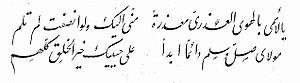 يا لائمي بالهوى العذري معذرة مني إليك ولو أنصفت لم تلم
مولاي صل وسلم دائما أبدا على حبيبك خير الخلق كلهم